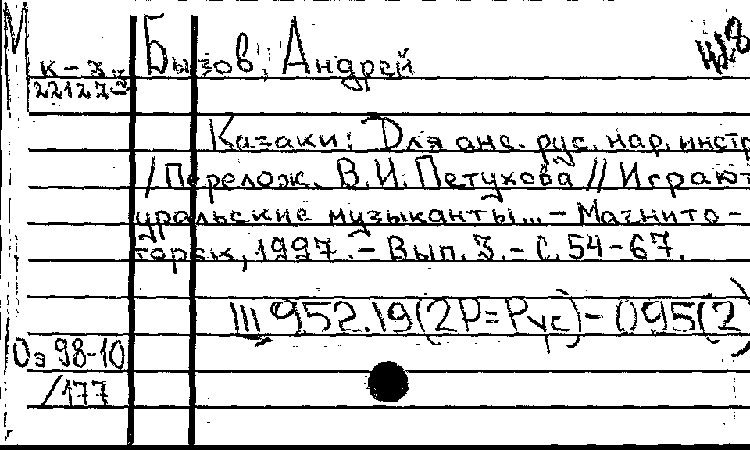 Бызов, Андрей
К-3
22127-
Казаки: Для анс. рус. нар. инстр
/ Перелож. В.И. Петухова // Играют
уральские музыканты... - Магнито-
горск, 1997. - Вып. 3. - С. 54-67.
Щ 952.19(2Р=Рус)-095(2)
Оэ 98-10
/177